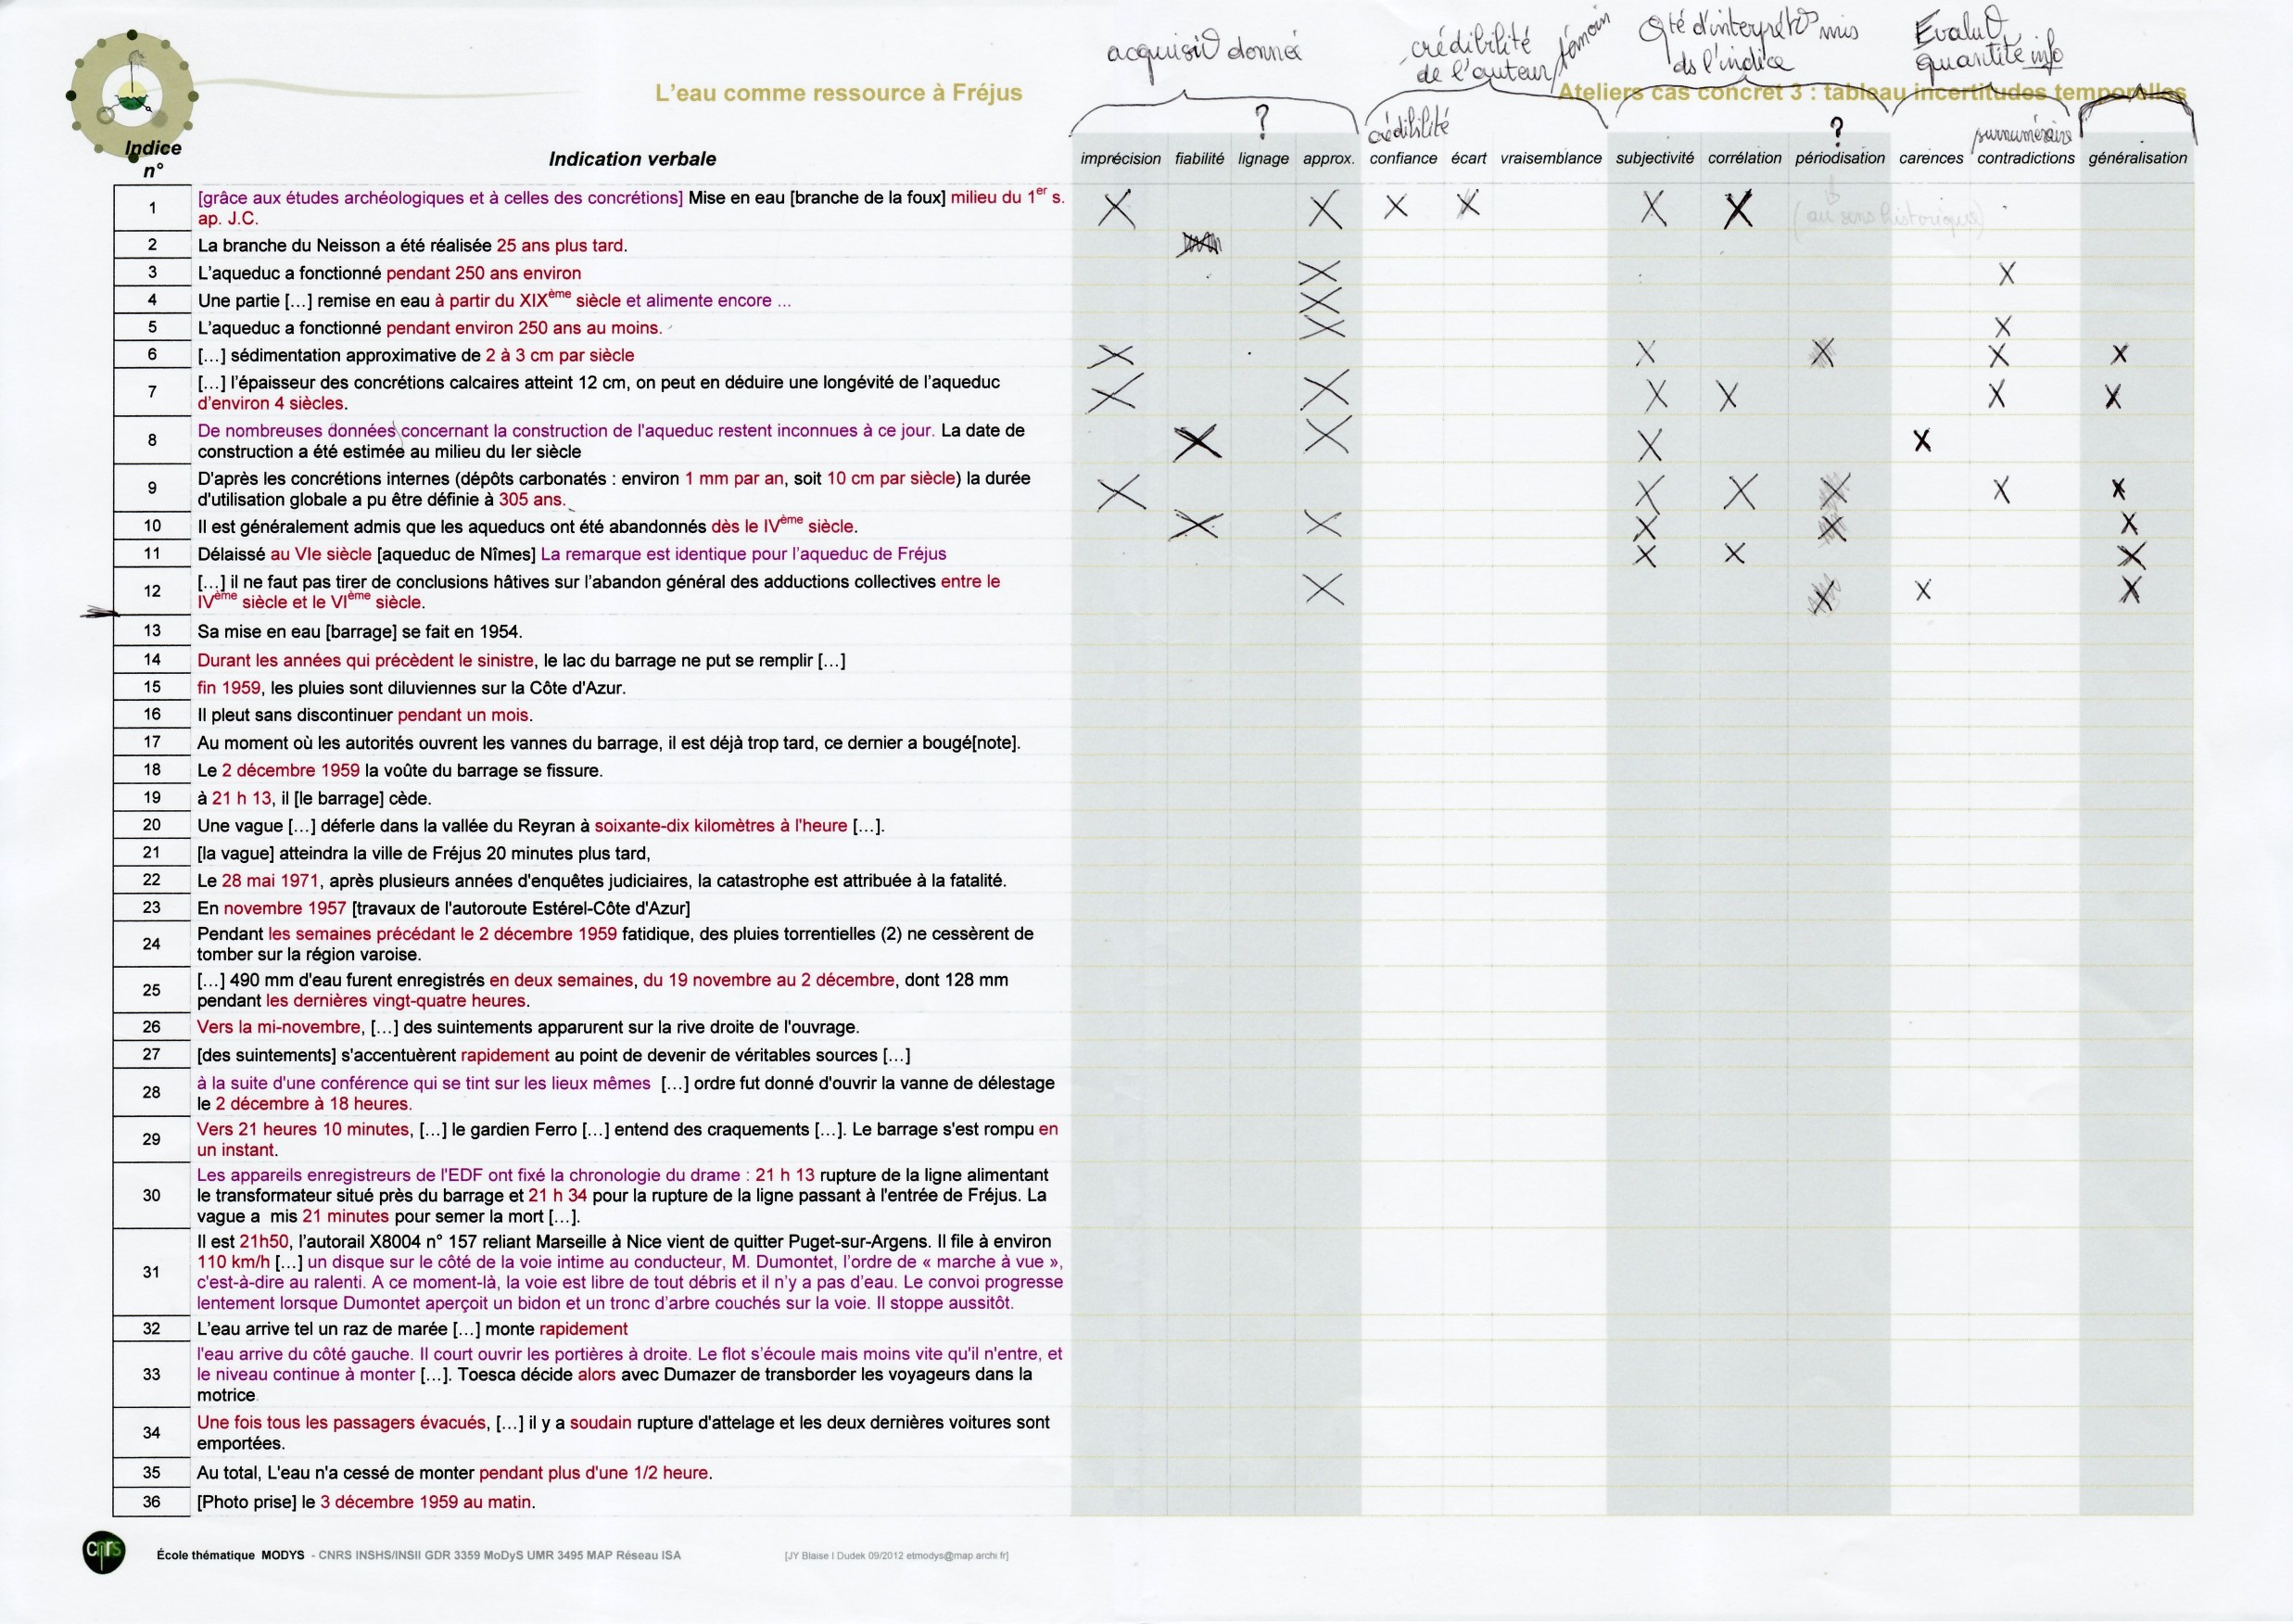 acquisit° donné
crédibilité
de l'auteur/témoin
Qté d'interprét° mis
ds l'indice
Evalut°
quantité info
L'eau comme ressource à Fréjus
Ateliers cas concret 3 : tableau incertitudes temporelles
?
crédibilité
?
surnuméraire
Indice
n°
Indication verbale
imprécision fiabilité lignage approx. confiance écart vraisemblance subjectivité corrélation périodisation carences contradictions généralisation
1 [grâce aux études archéologiques et à celles des concrétions] Mise en eau [branche de la foux] milieu du 1er s.
ap. J.C. X X X X X X
(au sens historique)
2 La branche du Neisson a été réalisée 25 ans plus tard.
3 L'aqueduc a fonctionné pendant 250 ans environ X X
4 Une partie [...] remise en eau à partir du XIXème siècle et alimente encore ... X
5 L'aqueduc a fonctionné pendant environ 250 ans au moins. X X
6 [...] sédimentation approximative de 2 à 3 cm par siècle X X X X X
7 [...] l'épaisseur des concrétions calcaires atteint 12 cm, on peut en déduire une longévité de l'aqueduc
d'environ 4 siècles. X X X X X X
8 De nombreuses données concernant la construction de l'aqueduc restent inconnues à ce jour. La date de
construction a été estimée au milieu du Ier siècle X X X X
9 D'après les concrétions internes (dépôts carbonatés : environ 1 mm par an, soit 10 cm par siècle) la durée
d'utilisation globale a pu être définie à 305 ans. X X X X X X
10 Il est généralement admis que les aqueducs ont été abandonnés dès le IVème siècle. X X X X X
11 Délaissé au VIe siècle [aqueduc de Nîmes] La remarque est identique pour l'aqueduc de Fréjus X X X
12 [...] il ne faut pas tirer de conclusions hâtives sur l'abandon général des adductions collectives entre le
IVème siècle et le VIème siècle. X X X X
13 Sa mise en eau [barrage] se fait en 1954.
14 Durant les années qui précèdent le sinistre, le lac du barrage ne put se remplir [...]
15 fin 1959, les pluies sont diluviennes sur la Côte d'Azur.
16 Il pleut sans discontinuer pendant un mois.
17 Au moment où les autorités ouvrent les vannes du barrage, il est déjà trop tard, ce dernier a bougé[note].
18 Le 2 décembre 1959 la voûte du barrage se fissure.
19 à 21 h 13, il [le barrage] cède.
20 Une vague [...] déferle dans la vallée du Reyran à soixante-dix kilomètres à l'heure [...].
21 [la vague] atteindra la ville de Fréjus 20 minutes plus tard,
22 Le 28 mai 1971, après plusieurs années d'enquêtes judiciaires, la catastrophe est attribuée à la fatalité.
23 En novembre 1957 [travaux de l'autoroute Estérel-Côte d'Azur]
24 Pendant les semaines précédant le 2 décembre 1959 fatidique, des pluies torrentielles (2) ne cessèrent de
tomber sur la région varoise.
25 [...] 490 mm d'eau furent enregistrés en deux semaines, du 19 novembre au 2 décembre, dont 128 mm
pendant les dernières vingt-quatre heures.
26 Vers la mi-novembre, [...] des suintements apparurent sur la rive droite de l'ouvrage.
27 [des suintements] s'accentuèrent rapidement au point de devenir de véritables sources [...]
28 à la suite d'une conférence qui se tint sur les lieux mêmes [...] ordre fut donné d'ouvrir la vanne de délestage
le 2 décembre à 18 heures.
29 Vers 21 heures 10 minutes, [...] le gardien Ferro [...] entend des craquements [...]. Le barrage s'est rompu en
un instant.
30 Les appareils enregistreurs de l'EDF ont fixé la chronologie du drame : 21 h 13 rupture de la ligne alimentant
le transformateur situé près du barrage et 21 h 34 pour la rupture de la ligne passant à l'entrée de Fréjus. La
vague a mis 21 minutes pour semer la mort [...].
31 Il est 21h50, l'autorail X8004 n° 157 reliant Marseille à Nice vient de quitter Puget-sur-Argens. Il file à environ
110 km/h [...] un disque sur le côté de la voie intime au conducteur, M. Dumontet, l'ordre de « marche à vue »,
c'est-à-dire au ralenti. A ce moment-là, la voie est libre de tout débris et il n'y a pas d'eau. Le convoi progresse
lentement lorsque Dumontet aperçoit un bidon et un tronc d'arbre couchés sur la voie. Il stoppe aussitôt.
32 L'eau arrive tel un raz de marée [...] monte rapidement
33 l'eau arrive du côté gauche. Il court ouvrir les portières à droite. Le flot s'écoule mais moins vite qu'il n'entre, et
le niveau continue à monter [...]. Toesca décide alors avec Dumazer de transborder les voyageurs dans la
motrice
34 Une fois tous les passagers évacués, [...] il y a soudain rupture d'attelage et les deux dernières voitures sont
emportées.
35 Au total, L'eau n'a cessé de monter pendant plus d'une 1/2 heure.
36 [Photo prise] le 3 décembre 1959 au matin.
cnrs
École thématique MODYS - CNRS INSHS/INSII GDR 3359 MoDyS UMR 3495 MAP Réseau ISA
[JY Blaise I Dudek 09/2012 etmodys@map.archi.fr]